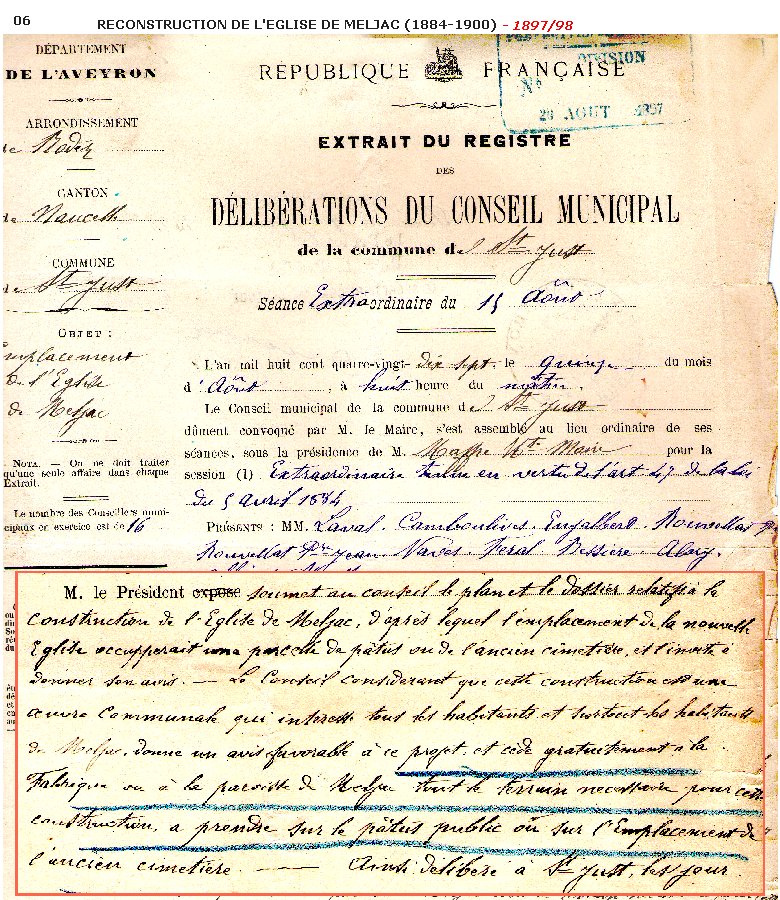 06
RECONSTRUCTION DE L'EGLISE DE MELJAC (1884-1900) - 1897/98
DÉPARTEMENT
DE L'AVEYRON
ARRONDISSEMENT
de Rodez
CANTON
de Naucelle
COMMUNE
de St Just
OBJET :
Emplacement
de l'Eglise
de Meljac
NOTA. — On ne doit traiter
qu'une seule affaire dans chaque
Extrait.
Le nombre des Conseillers muni-
cipaux en exercice est de 16
RÉPUBLIQUE FRANÇAISE
DIVISION
No
20 AOUT 1897
EXTRAIT DU REGISTRE
DES
DÉLIBÉRATIONS DU CONSEIL MUNICIPAL
de la commune de St Just
Séance Extraordinaire du 15 Août
L'an mil huit cent quatre-vingt-dix sept le quinze du mois
d'Août, à huit heure du matin.
Le Conseil municipal de la commune de St Just
dûment convoqué par M. le Maire, s'est assemblé au lieu ordinaire de ses
séances, sous la présidence de M. Maffre Maire pour la
session (1) Extraordinaire tenue en vertu de l'art 47 de la loi
du 5 avril 1884
PRÉSENTS : MM. Laval, Camboulives, Enjalbert, Rouvellat
Rouvellat Jean, Naves, Féral, Bessière, Albery,
M. le Président expose soumet au conseil le plan et le dossier relatif à la
construction de l'Eglise de Meljac, d'après lequel l'emplacement de la nouvelle
Eglise occupperait une parcelle de pâtus ou de l'ancien cimetière, et l'invite à
donner son avis. — Le Conseil considérant que cette construction est une
œuvre Communale qui intéresse tous les habitants et surtout les habitants
de Meljac, donne un avis favorable à ce projet, et cède gratuitement à la
Fabrique ou à la paroisse de Meljac tout le terrain nécessaire pour cette
construction, à prendre sur le pâtus public où sur l'Emplacement de
l'ancien cimetière. — Ainsi délibéré à St Just, les jour